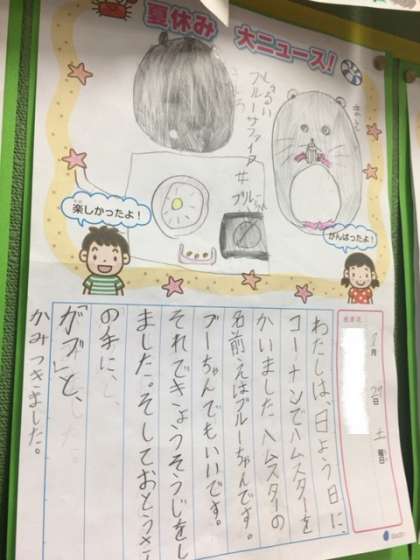 夏休み 大ニュース!
しゅるい
ブルーサファイア
ブルーちゃん
楽しかったよ!
がんばったよ!
月
日
土
曜日
わたしは、日よう日に、
コーナンでハムスターを
かいました ハムスターの
名前えはブルーちゃんです。
ブーちゃんでもいいです。
それできょうそうじをし
ました。そしておとうさん
の手に、
「ガブ」と、
かみつきました。